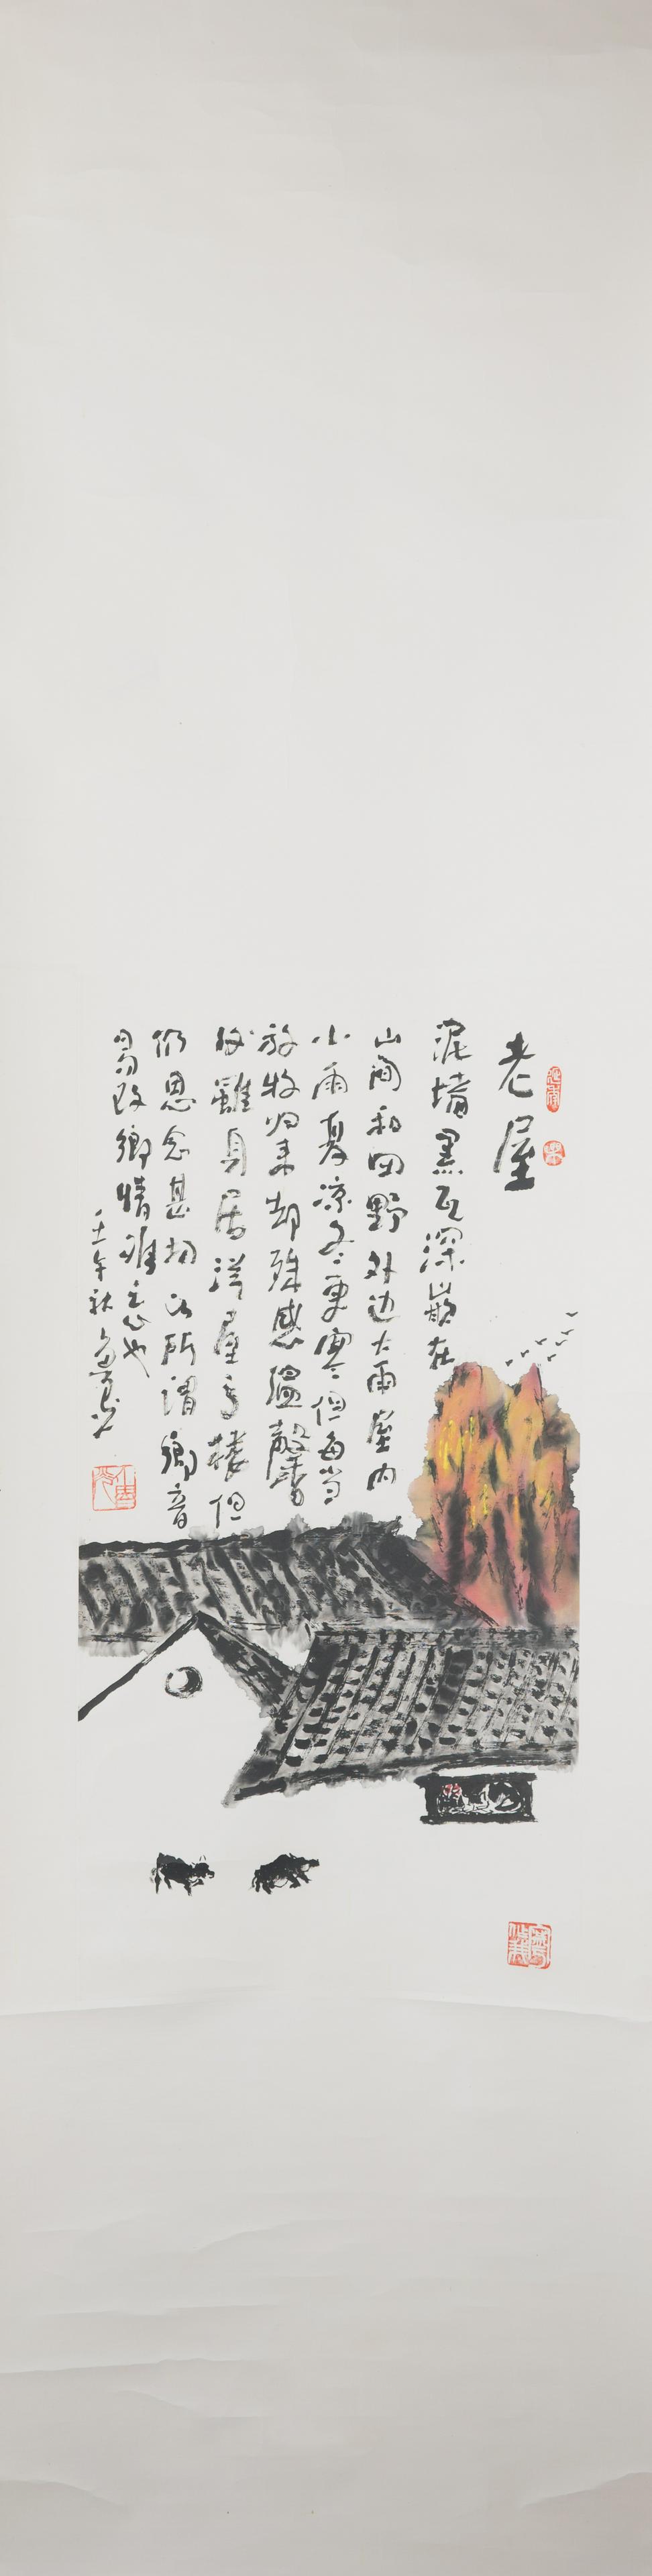 老屋
泥墙黑瓦深嵌在
山间和田野外边大雨屋内
小雨夏凉冬更寒但每当
放牧归来却殊感溫馨
雖身居洋屋高楼但
仍思念甚切以所谓鄉音
易改鄉情难忘也
壬午秋